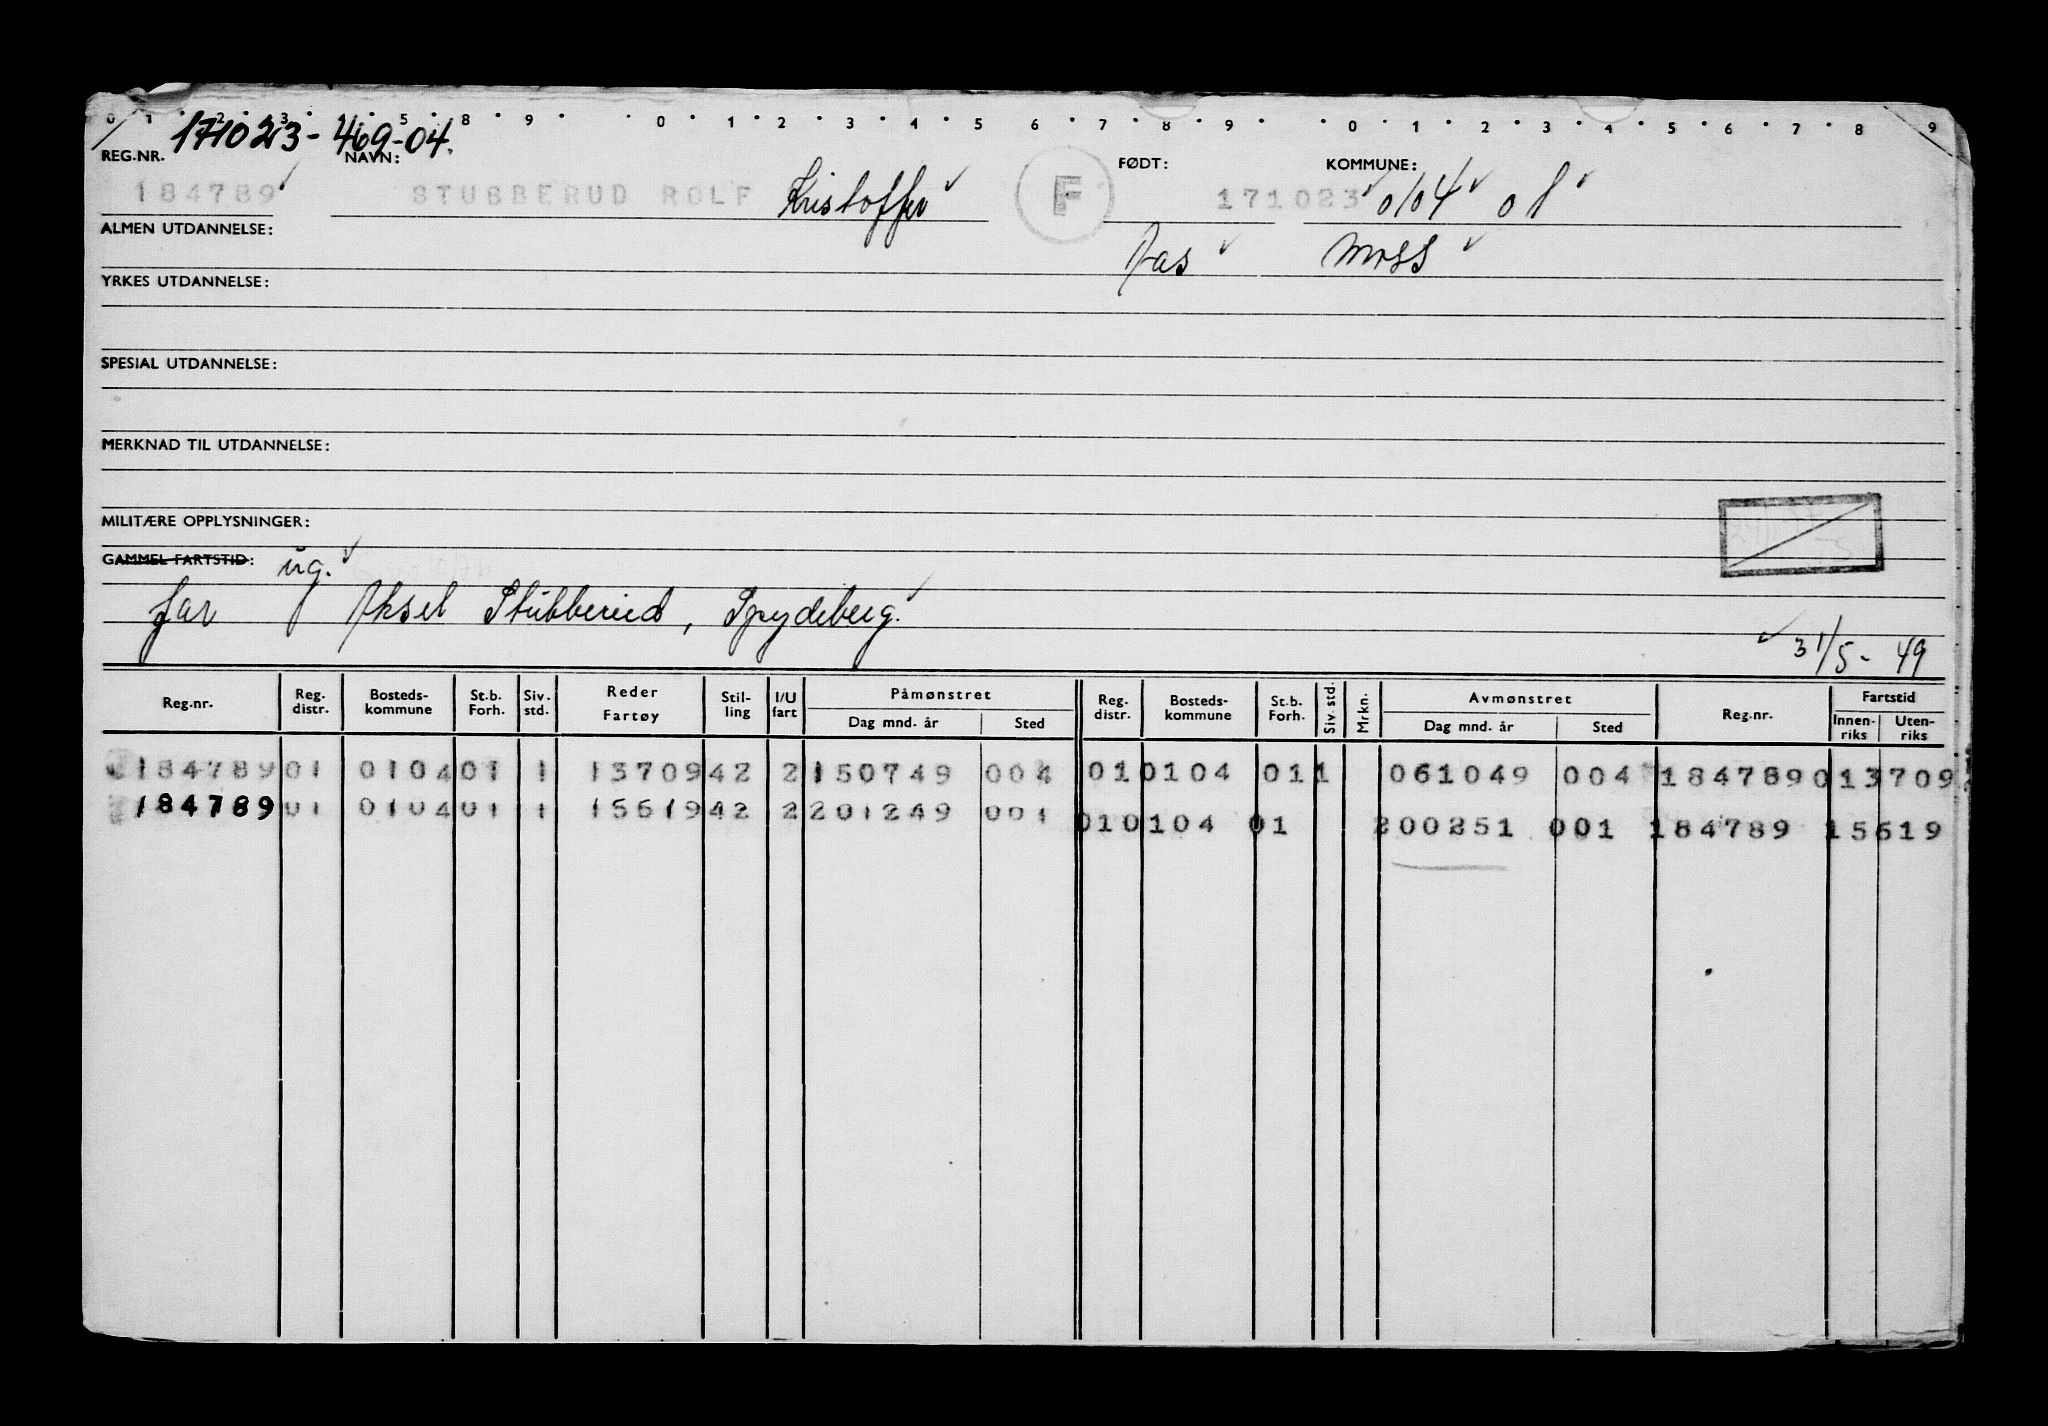 0 1 2 3 5 8 9 0 1 2 3 4 5 6 7 8 9 0 1 2 3 4 5 6 7 8 9
171023-469-04.
REG.NR. NAVN: FØDT: KOMMUNE:
184789 STUBBERUD ROLF Kristoffer F 171023 0104 01
ALMEN UTDANNELSE: Aas Moss
YRKES UTDANNELSE:
SPESIAL UTDANNELSE:
MERKNAD TIL UTDANNELSE:
MILITÆRE OPPLYSNINGER:
GAMMEL FARTSTID: ug.
far Aksel Stubberud, Spydeberg.
31/5-49
Reg.nr. Reg. distr. Bosteds-kommune St.b. Forh. Siv. std. Reder Fartøy Stil-ling I/U fart Påmønstret Dag mnd. år Sted Reg. distr. Bosteds-kommune St.b. Forh. Siv. std. Mrkn. Avmønstret Dag mnd. år Sted Reg.nr. Fartstid Innen-riks Uten-riks
184789 01 0104 01 1 13709 42 2 150749 004 01 0104 01 1 061049 004 184789 013709
184789 01 0104 01 1 15619 42 2 201249 001 01 0104 01 200251 001 184789 15619